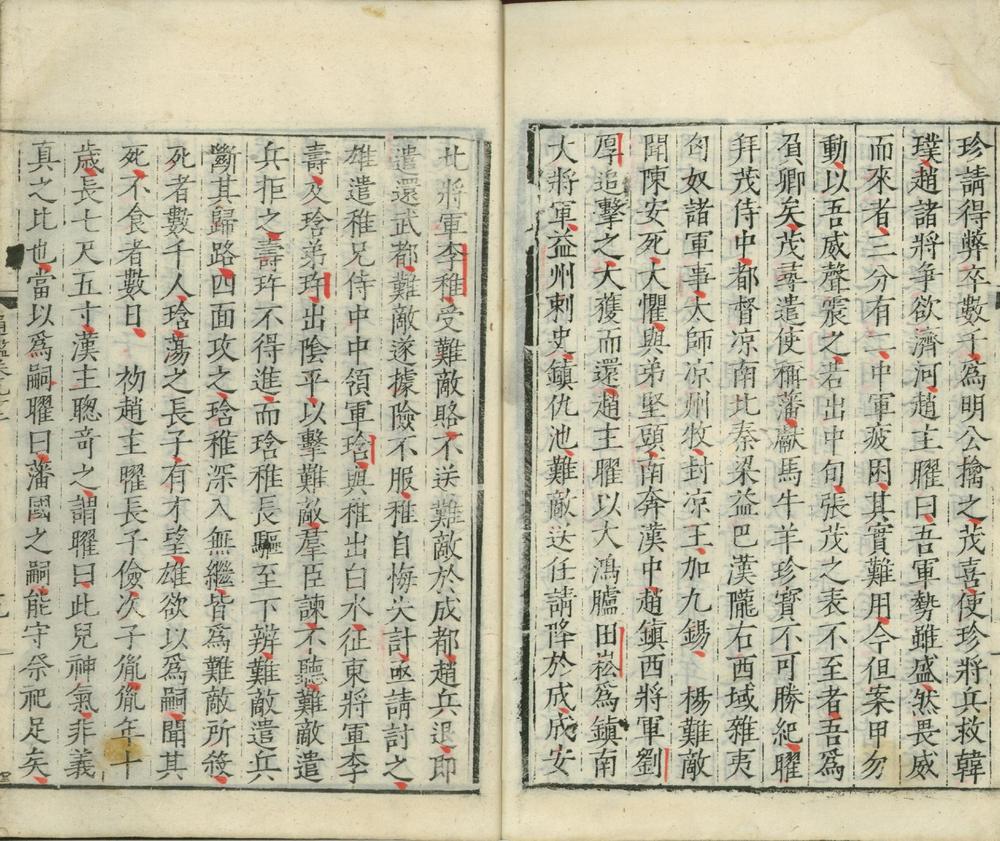 珍請得弊卒數千爲明公擒之茂喜使珍將兵救韓
璞趙諸將爭欲濟河趙主曜曰吾軍勢雖盛然畏威
而來者三分有二中軍疲困其實難用今但案甲勿
動以吾威聲震之若出中旬張茂之表不至者吾爲
負卿矣茂尋遣使稱藩獻馬牛羊珍寶不可勝紀曜
拜茂侍中都督凉南北秦梁益巴漢隴右西域雜夷
匈奴諸軍事太師凉州牧封凉王加九錫 楊難敵
聞陳安死大懼與弟堅頭南奔漢中趙鎮西將軍劉
厚追擊之大獲而還趙主曜以大鴻臚田崧爲鎮南
大將軍益州刺史鎮仇池難敵送任請降於成成安
北將軍李稚受難敵賂不送難敵於成都趙兵退即
遣還武都難敵遂據險不服稚自悔失計亟請討之
雄遣稚兄侍中中領軍琀與稚出白水征東將軍李
壽及琀弟玝出陰平以擊難敵羣臣諫不聽難敵遣
兵拒之壽玝不得進而琀稚長驅至下辨難敵遣兵
斷其歸路四面攻之琀稚深入無繼皆爲難敵所殺
死者數千人琀蕩之長子有才望雄欲以爲嗣聞其
死不食者數日 初趙主曜長子儉次子胤胤年十
歲長七尺五寸漢主聰奇之謂曜曰此兒神氣非義
真之比也當以爲嗣曜曰藩國之嗣能守祭祀足矣